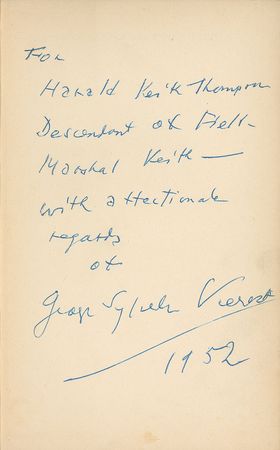 For
Harald Keith Thompson
Descendant of Field-
Marshal Keith —
with affectionate
regards
of
George Sylvester Viereck
1952